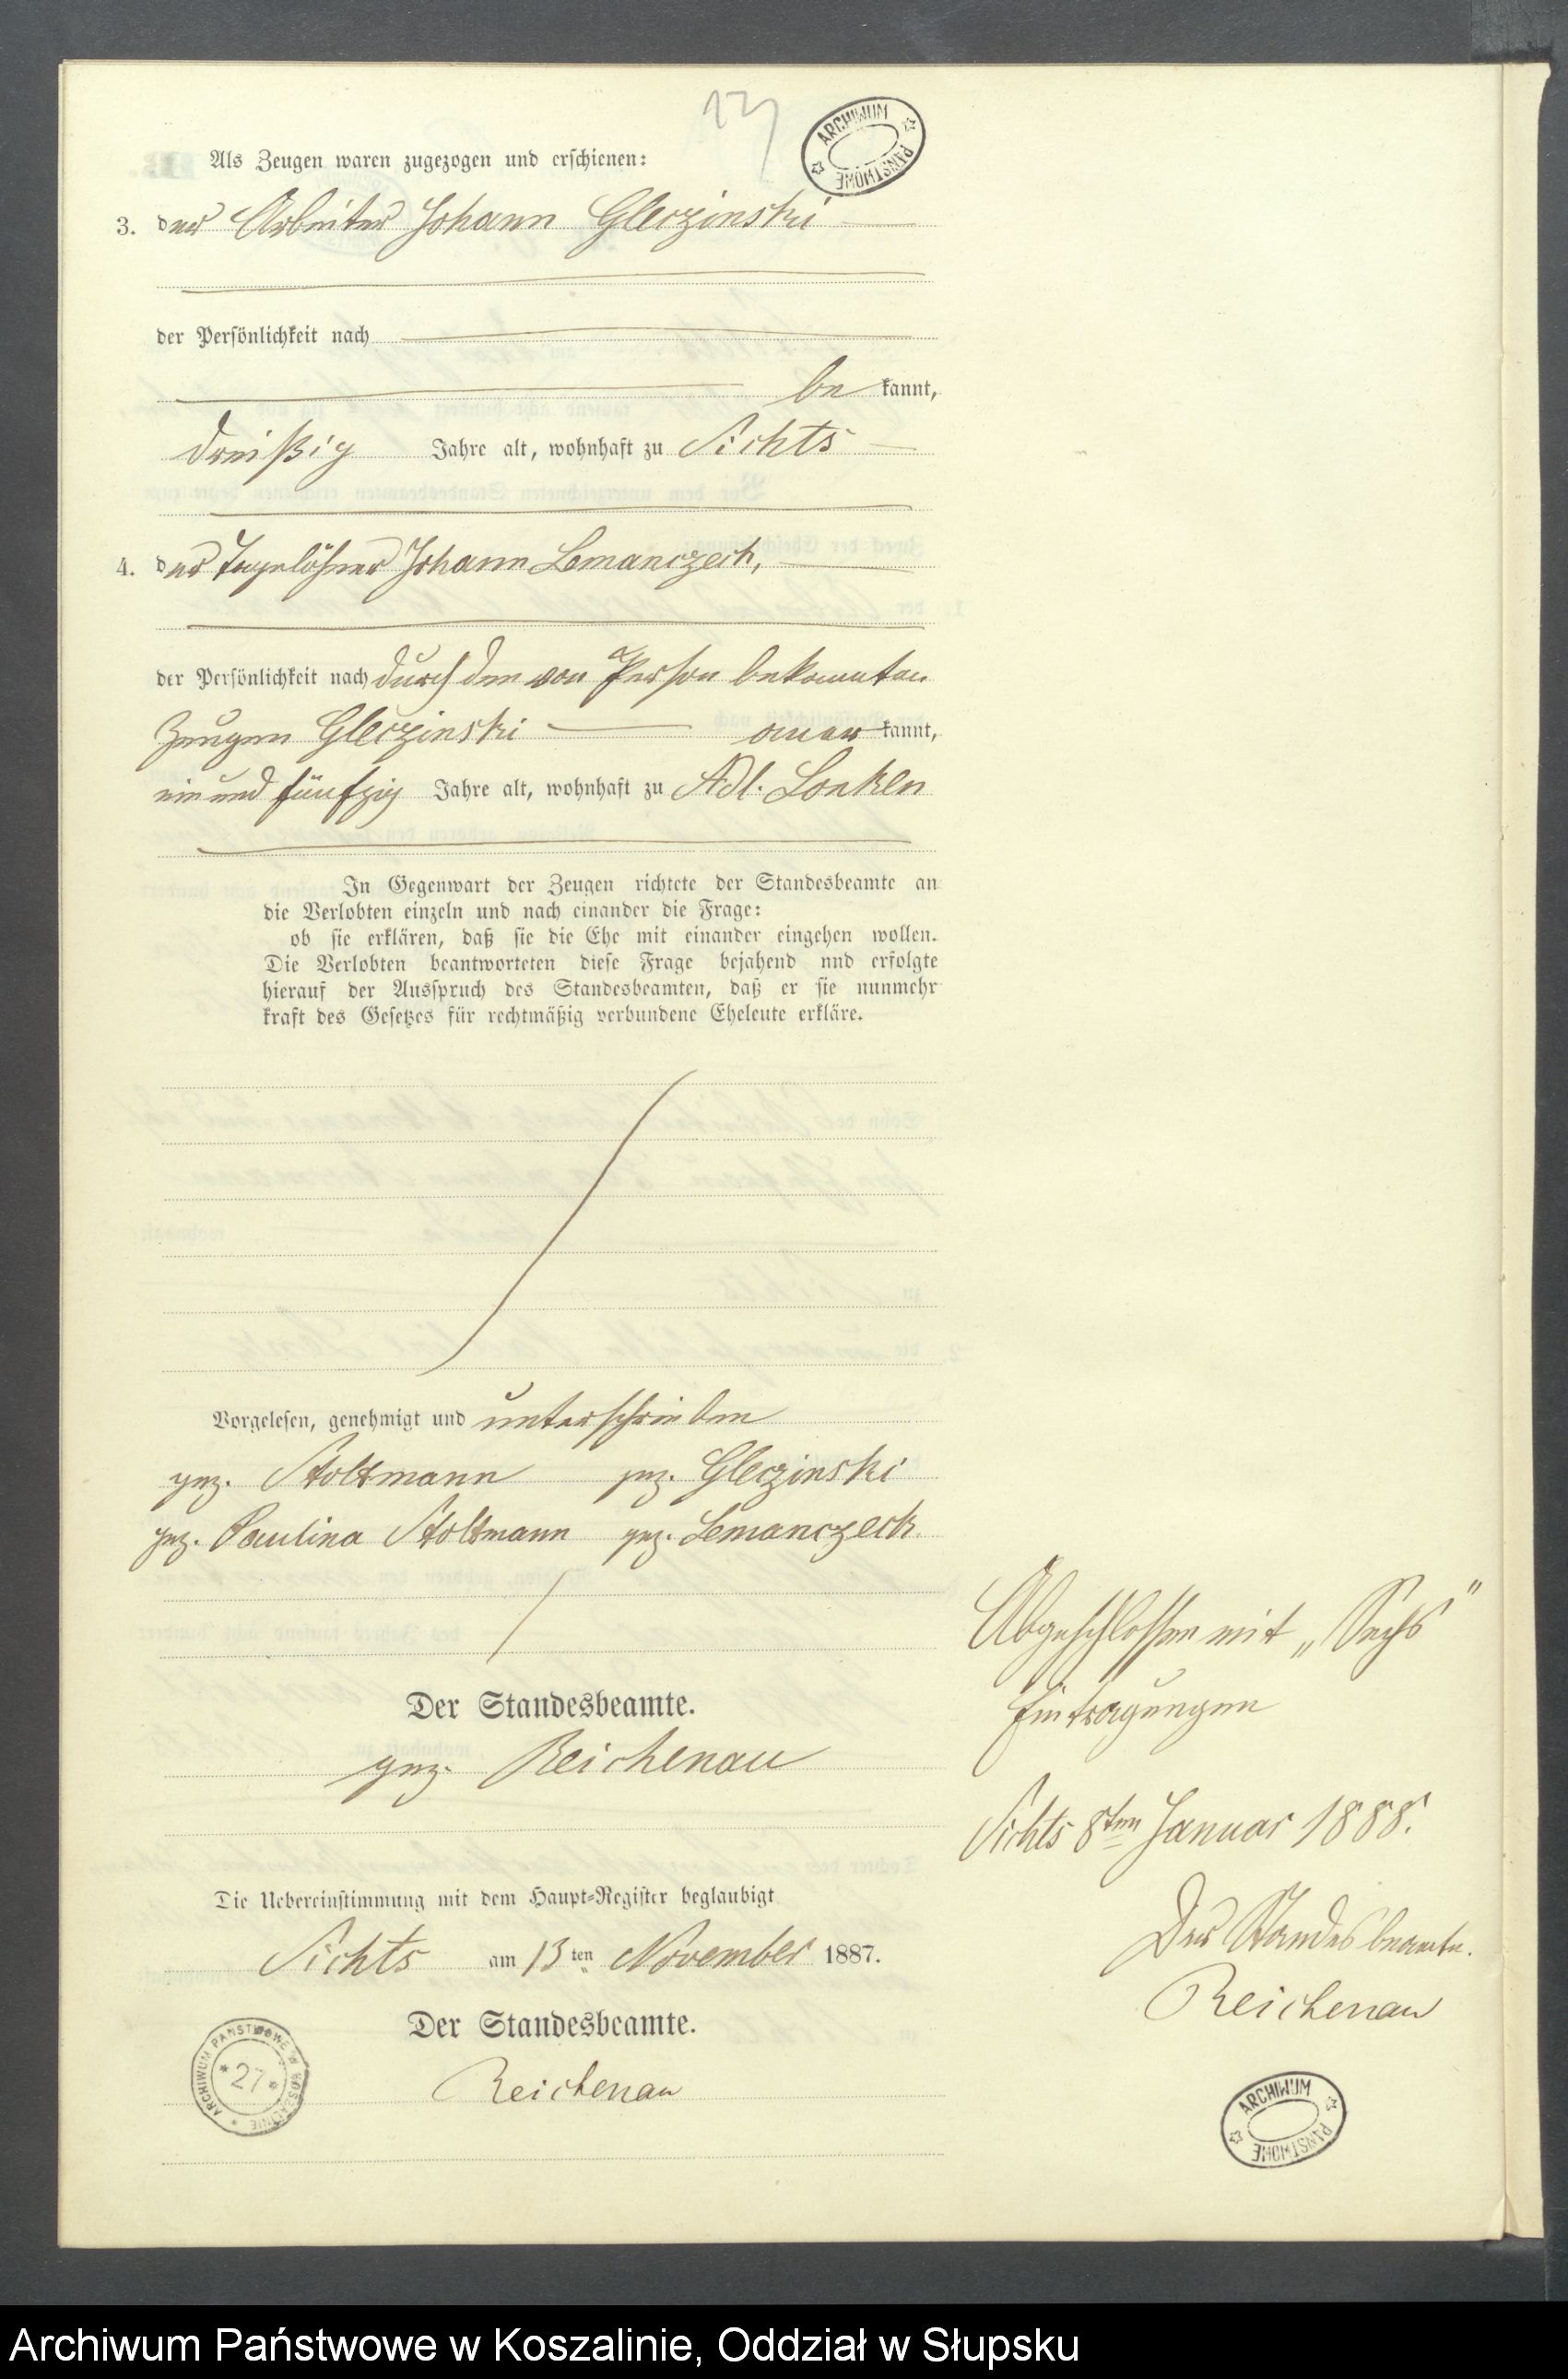 13
ARCHIWUM PAŃSTWOWE
Als Zeugen waren zugezogen und erschienen:
3. der Arbeiter Johann Gleczinski
der Persönlichkeit nach
be kannt,
dreißig Jahre alt, wohnhaft zu Sichts
4. der Tagelöhner Johann Lemanczeck,
der Persönlichkeit nach durch den von Person bekannten
Zeugen Gleczinski aner kannt,
ein und fünfzig Jahre alt, wohnhaft zu Adl. Lonken
In Gegenwart der Zeugen richtete der Standesbeamte an
die Verlobten einzeln und nach einander die Frage:
ob sie erklären, daß sie die Ehe mit einander eingehen wollen.
Die Verlobten beantworteten diese Frage bejahend nnd erfolgte
hierauf der Ausspruch des Standesbeamten, daß er sie nunmehr
kraft des Gesetzes für rechtmäßig verbundene Eheleute erkläre.
Vorgelesen, genehmigt und unterschrieben
gez. Stoltmann gez. Gleczinski
gez. Paulina Stoltmann gez. Lemanczeck
Der Standesbeamte.
gez. Reichenau
Die Uebereinstimmung mit dem Haupt-Register beglaubigt
Sichts am 13ten November 1887.
Der Standesbeamte.
Reichenau
ARCHIWUM PAŃSTWOWE W KOSZALINIE
*27*
Abgeschlossen mit „Sechs"
Eintragungen
Sichts 8ten Januar 1888.
Der Standesbeamte.
Reichenau
ARCHIWUM PAŃSTWOWE
Archiwum Państwowe w Koszalinie, Oddział w Słupsku